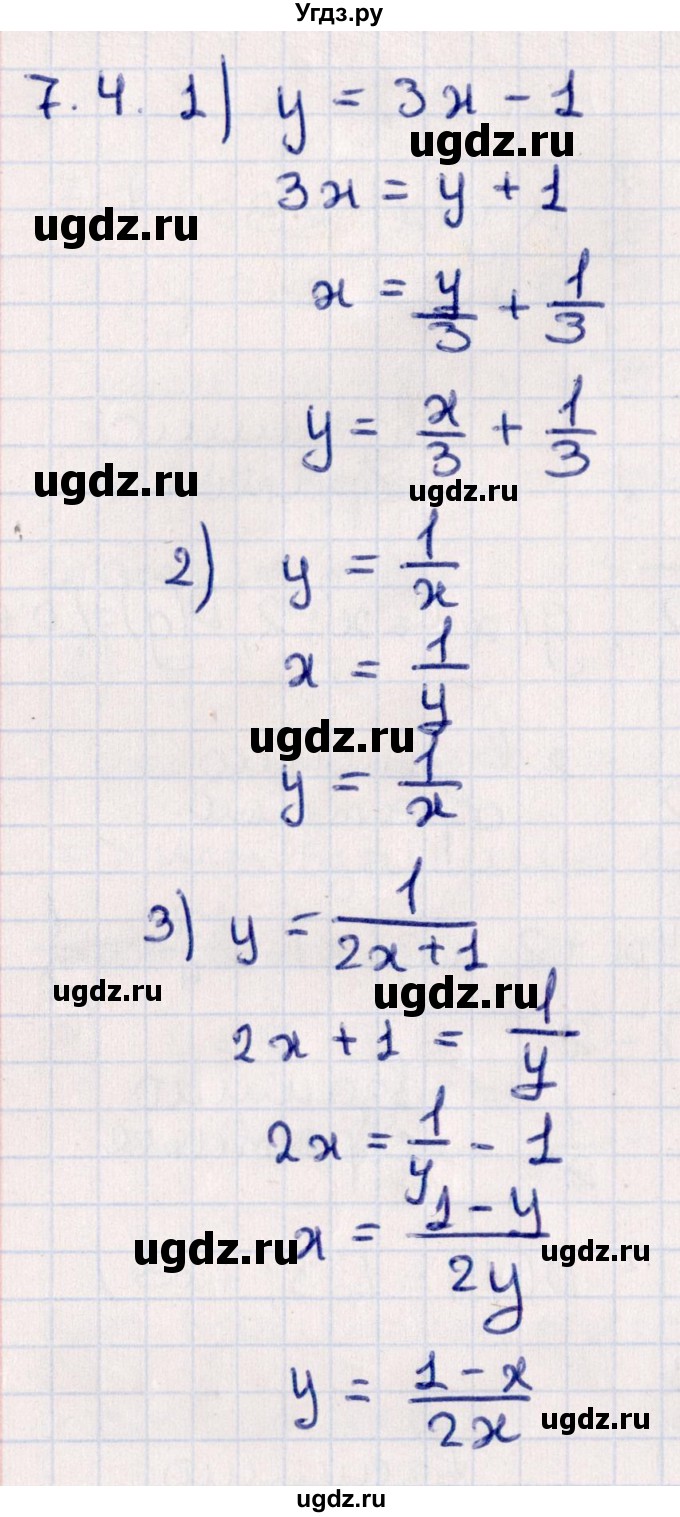 Угдз.ру
7.4. 1) y = 3x - 1
ugdz.ru
3x = y + 1
ugdz.ru
x = y/3 + 1/3
y = x/3 + 1/3
ugdz.ru
ugdz.ru
2) y = 1/x
x = 1/y
ugdz.ru
y = 1/x
3) y = 1/(2x + 1)
ugdz.ru
ugdz.ru
2x + 1 = 1/y
2x = 1/y - 1
x = (1 - y)/(2y)
ugdz.ru
ugdz.ru
y = (1 - x)/(2x)
ugdz.ru
ugdz.ru